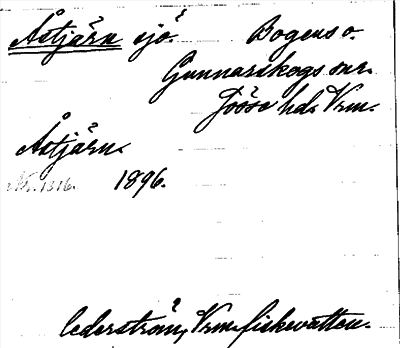 Åstjärn sjö. Bogens o.
Gunnarskogs snr.
Jösse hd. Vrm.
Åstjärn.
Nr. 1316. 1896.
Cederström, Vrm. fiskevatten.